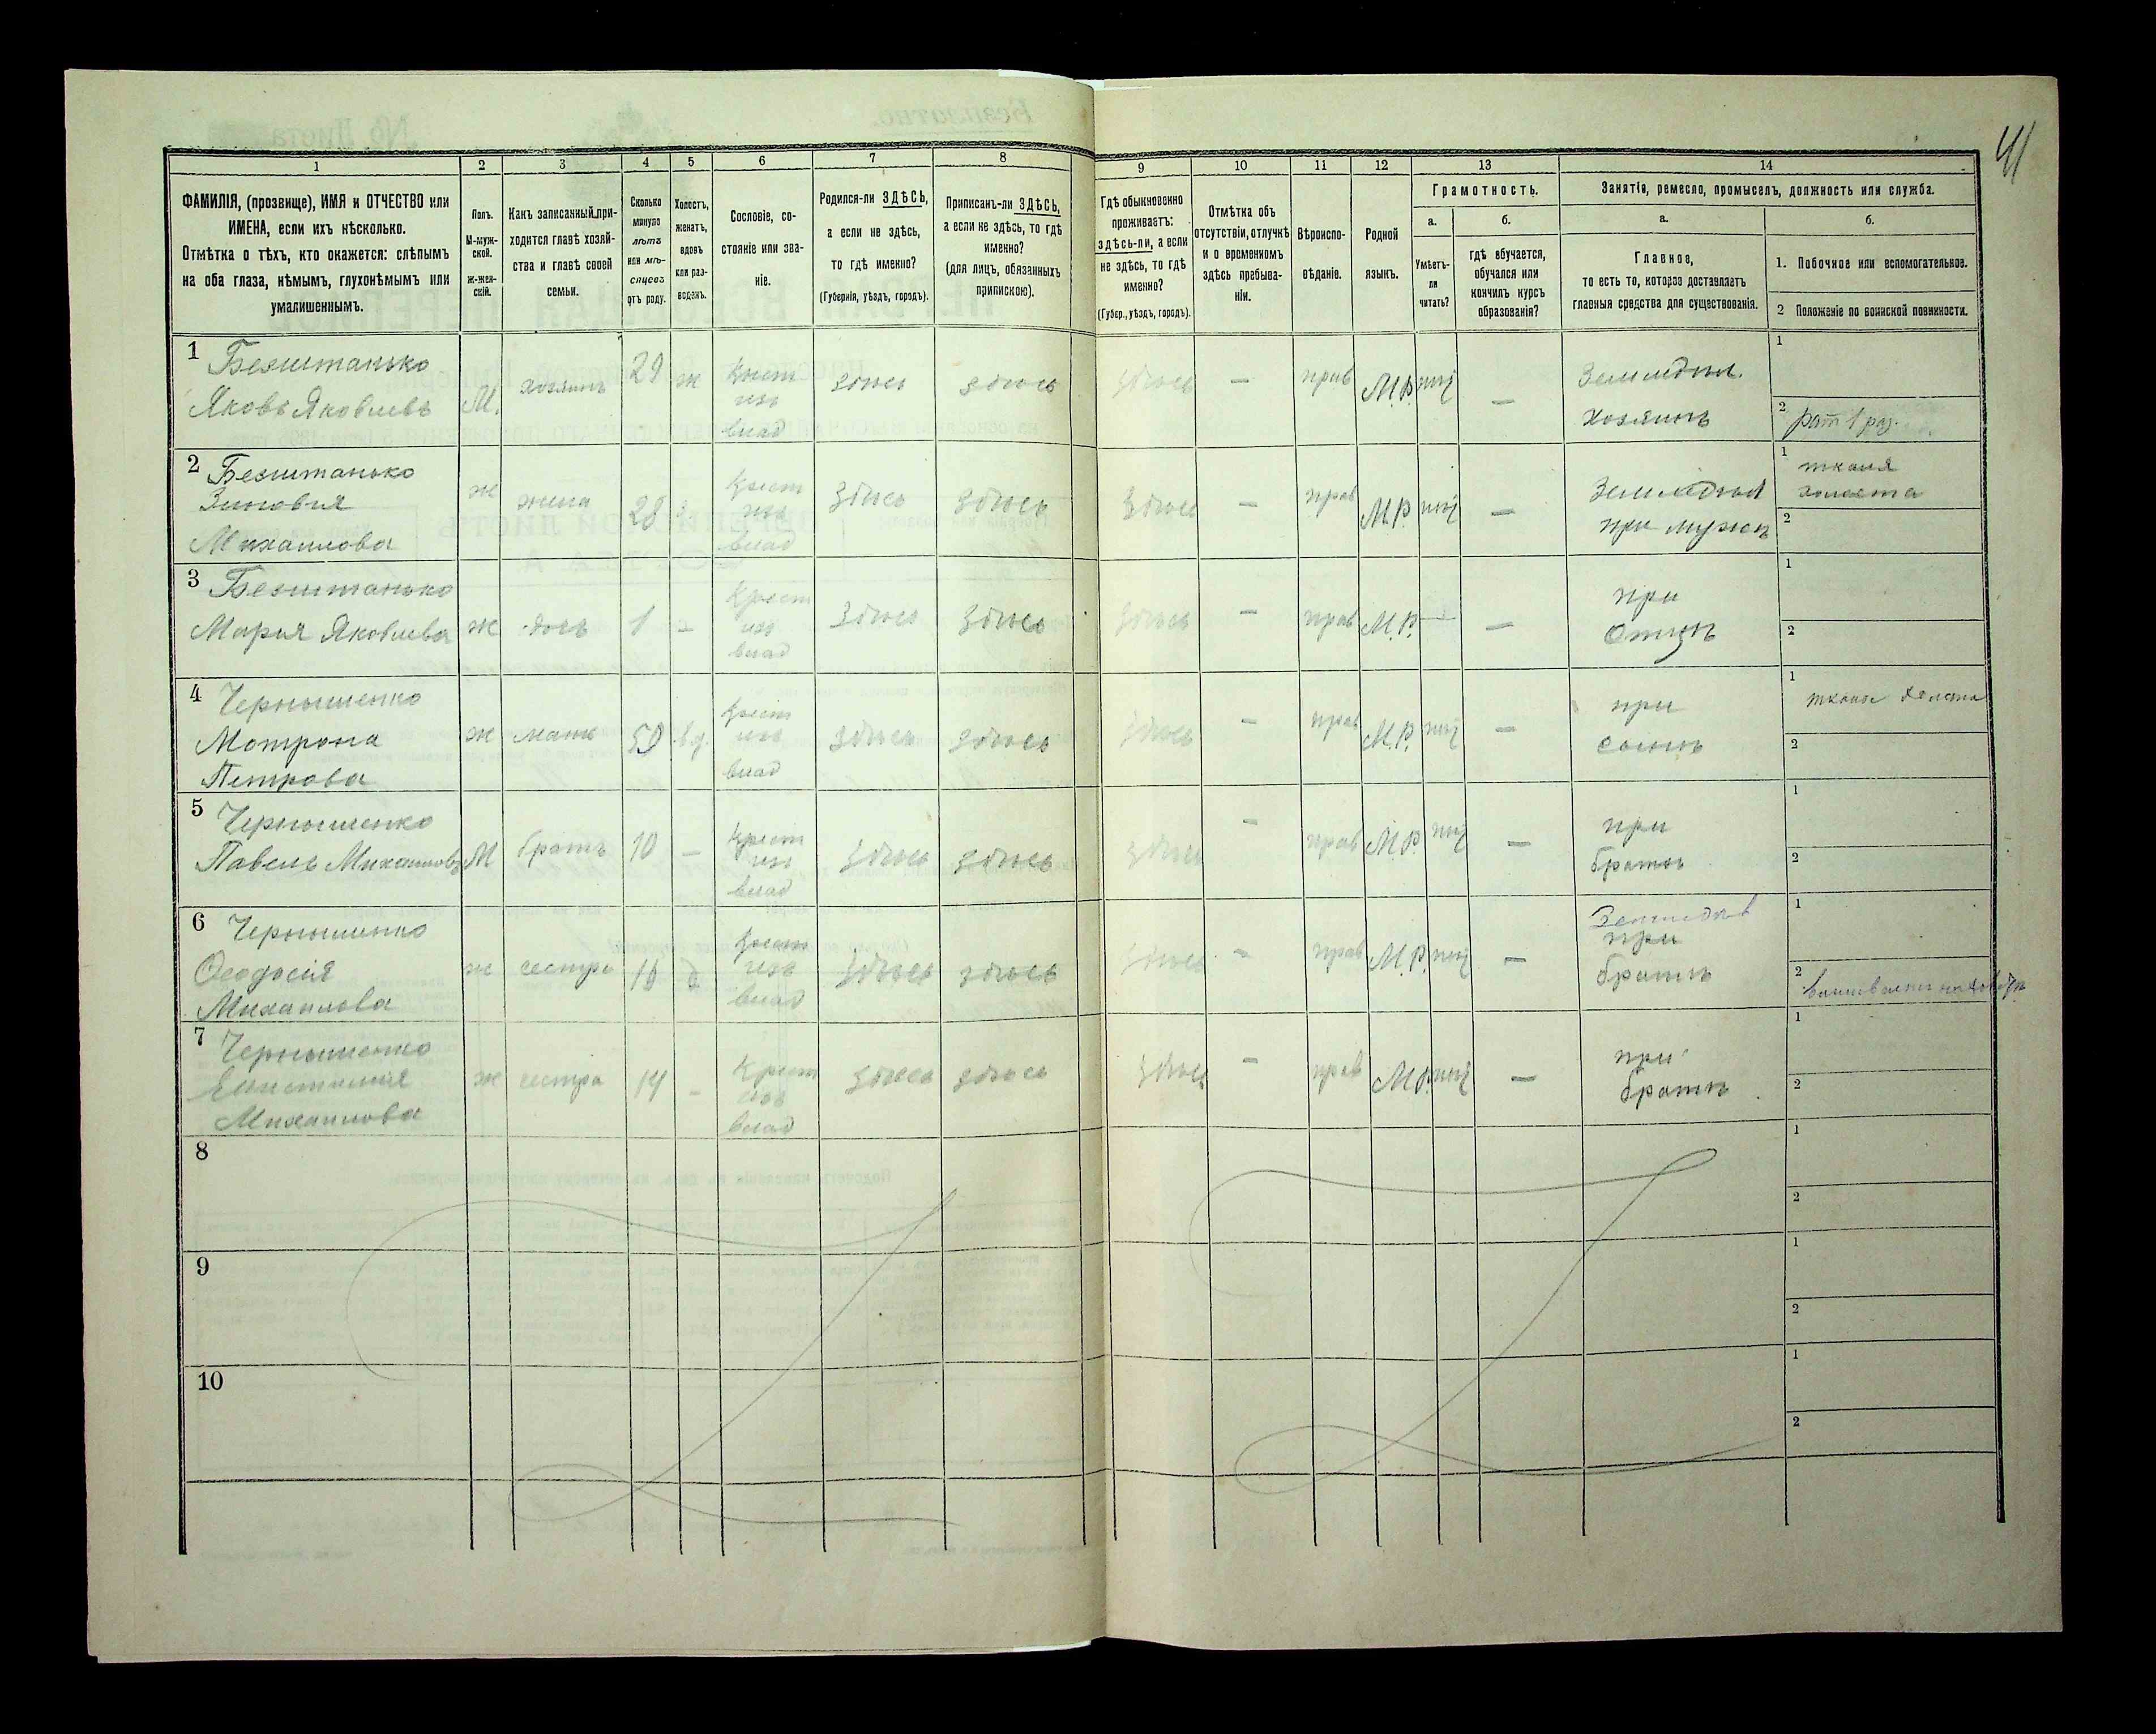 41
1
2
3
4
5
6
7
8
9
10
11
12
13
14
ФАМИЛІЯ, (прозвище), ИМЯ и ОТЧЕСТВО или
ИМЕНА, если ихъ нѣсколько.
Отмѣтка о тѣхъ, кто окажется: слѣпымъ
на оба глаза, нѣмымъ, глухонѣмымъ или
умалишеннымъ.
Полъ.
М-муж-
ской.
ж-жен-
скій.
Какъ записанный при-
ходится главѣ хозяй-
ства и главѣ своей
семьи.
Сколько
минуло
лѣтъ
или мѣ-
сяцевъ
отъ роду.
Холостъ,
женатъ,
вдовъ
или раз-
веденъ.
Сословіе, со-
стояніе или зва-
ніе.
Родился-ли ЗДѢСЬ,
а если не здѣсь,
то гдѣ именно?
(Губернія, уѣздъ, городъ).
Приписанъ-ли ЗДѢСЬ,
а если не здѣсь, то гдѣ
именно?
(для лицъ, обязанныхъ
припискою).
Гдѣ обыкновенно
проживаетъ:
здѣсь-ли, а если
не здѣсь, то гдѣ
именно?
(Губер., уѣздъ, городъ).
Отмѣтка объ
отсутствіи, отлучкѣ
и о временномъ
здѣсь пребыва-
ніи.
Вѣроиспо-
вѣданіе.
Родной
языкъ.
Грамотность.
а.
Умѣетъ-
ли
читать?
б.
гдѣ обучается,
обучался или
кончилъ курсъ
образованія?
Занятіе, ремесло, промыселъ, должность или служба.
а.
Главное,
то есть то, которое доставляетъ
главныя средства для существованія.
б.
1. Побочное или вспомогательное.
2 Положеніе по воинской повинности.
1 Безштанько
Яковъ Яковлевъ
М.
хозяинъ
29
ж
Крест
изъ
влад
здѣсь
здѣсь
здѣсь
—
прав
М.Р.
—
Земледѣл.
хозяинъ
1
2 рат 1 раз.
2 Безштанько
Зиновія
Михаилова
ж
жена
28
Крест
изъ
влад
здѣсь
здѣсь
здѣсь
—
прав
М.Р.
—
при мужѣ
1 тканя
холста
2
3 Безштанько
Марья Яковлева
ж
дочь
1
—
Крест
изъ
влад
здѣсь
здѣсь
здѣсь
—
прав
М.Р.
—
—
при
Отцѣ
1
2
4 Чернышенко
Мотрона
Петрова
ж
мать
59
вд.
Крест
изъ
влад
здѣсь
здѣсь
здѣсь
—
прав
М.Р.
—
при
сынѣ
1 холста
2
5 Чернышенко
Павелъ Михаиловъ
М
братъ
10
—
Крест
изъ
влад
здѣсь
здѣсь
здѣсь
—
прав
М.Р.
—
при
братѣ
1
2
6 Чернышенко
Ѳеодосія
Михаилова
ж
сестра
д
Крест
изъ
влад
здѣсь
здѣсь
здѣсь
—
прав
М.Р.
—
при
братѣ
1
2
7 Чернышенко
Михаилова
ж
сестра
14
—
Крест
изъ
влад
здѣсь
здѣсь
здѣсь
—
прав
М.Р.
—
при
братѣ
1
2
8
1
2
9
1
2
10
1
2